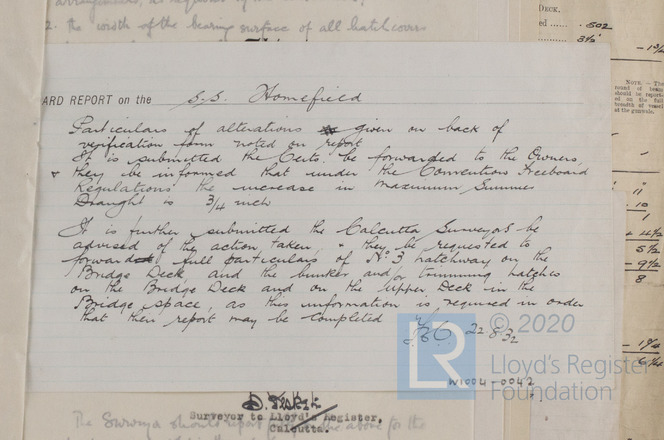 2. the width of the bearing surface of all hatch covers
DECK.
ed ........ .502
........ 3½
- 1¾
NOTE.—The
ARD REPORT on the S.S. Homefield
Particulars of alterations given on back of
verification form noted on report
It is submitted the Certs. be forwarded to the Owners,
& they be informed that under the Convention Freeboard
Regulations the increase in maximum Summer
Draught is 3/4 inch
It is further submitted the Calcutta Surveyors be
advised of the action taken & they be requested to
forward full particulars of No 3 hatchway on the
Bridge Deck and the bunker and/or trimming hatches
on the Bridge Deck and on the Upper Deck in the
Bridge space, as this information is required in order
that their report may be completed
22.8.32
11
10
1
+ 4½
5½
- 9½
8
- 1¾
6¼
LR
© 2020
Lloyd's Register
Foundation
W1004-0042
Surveyor to Lloyd's Register,
Calcutta.
The Surveyor should report the above for the